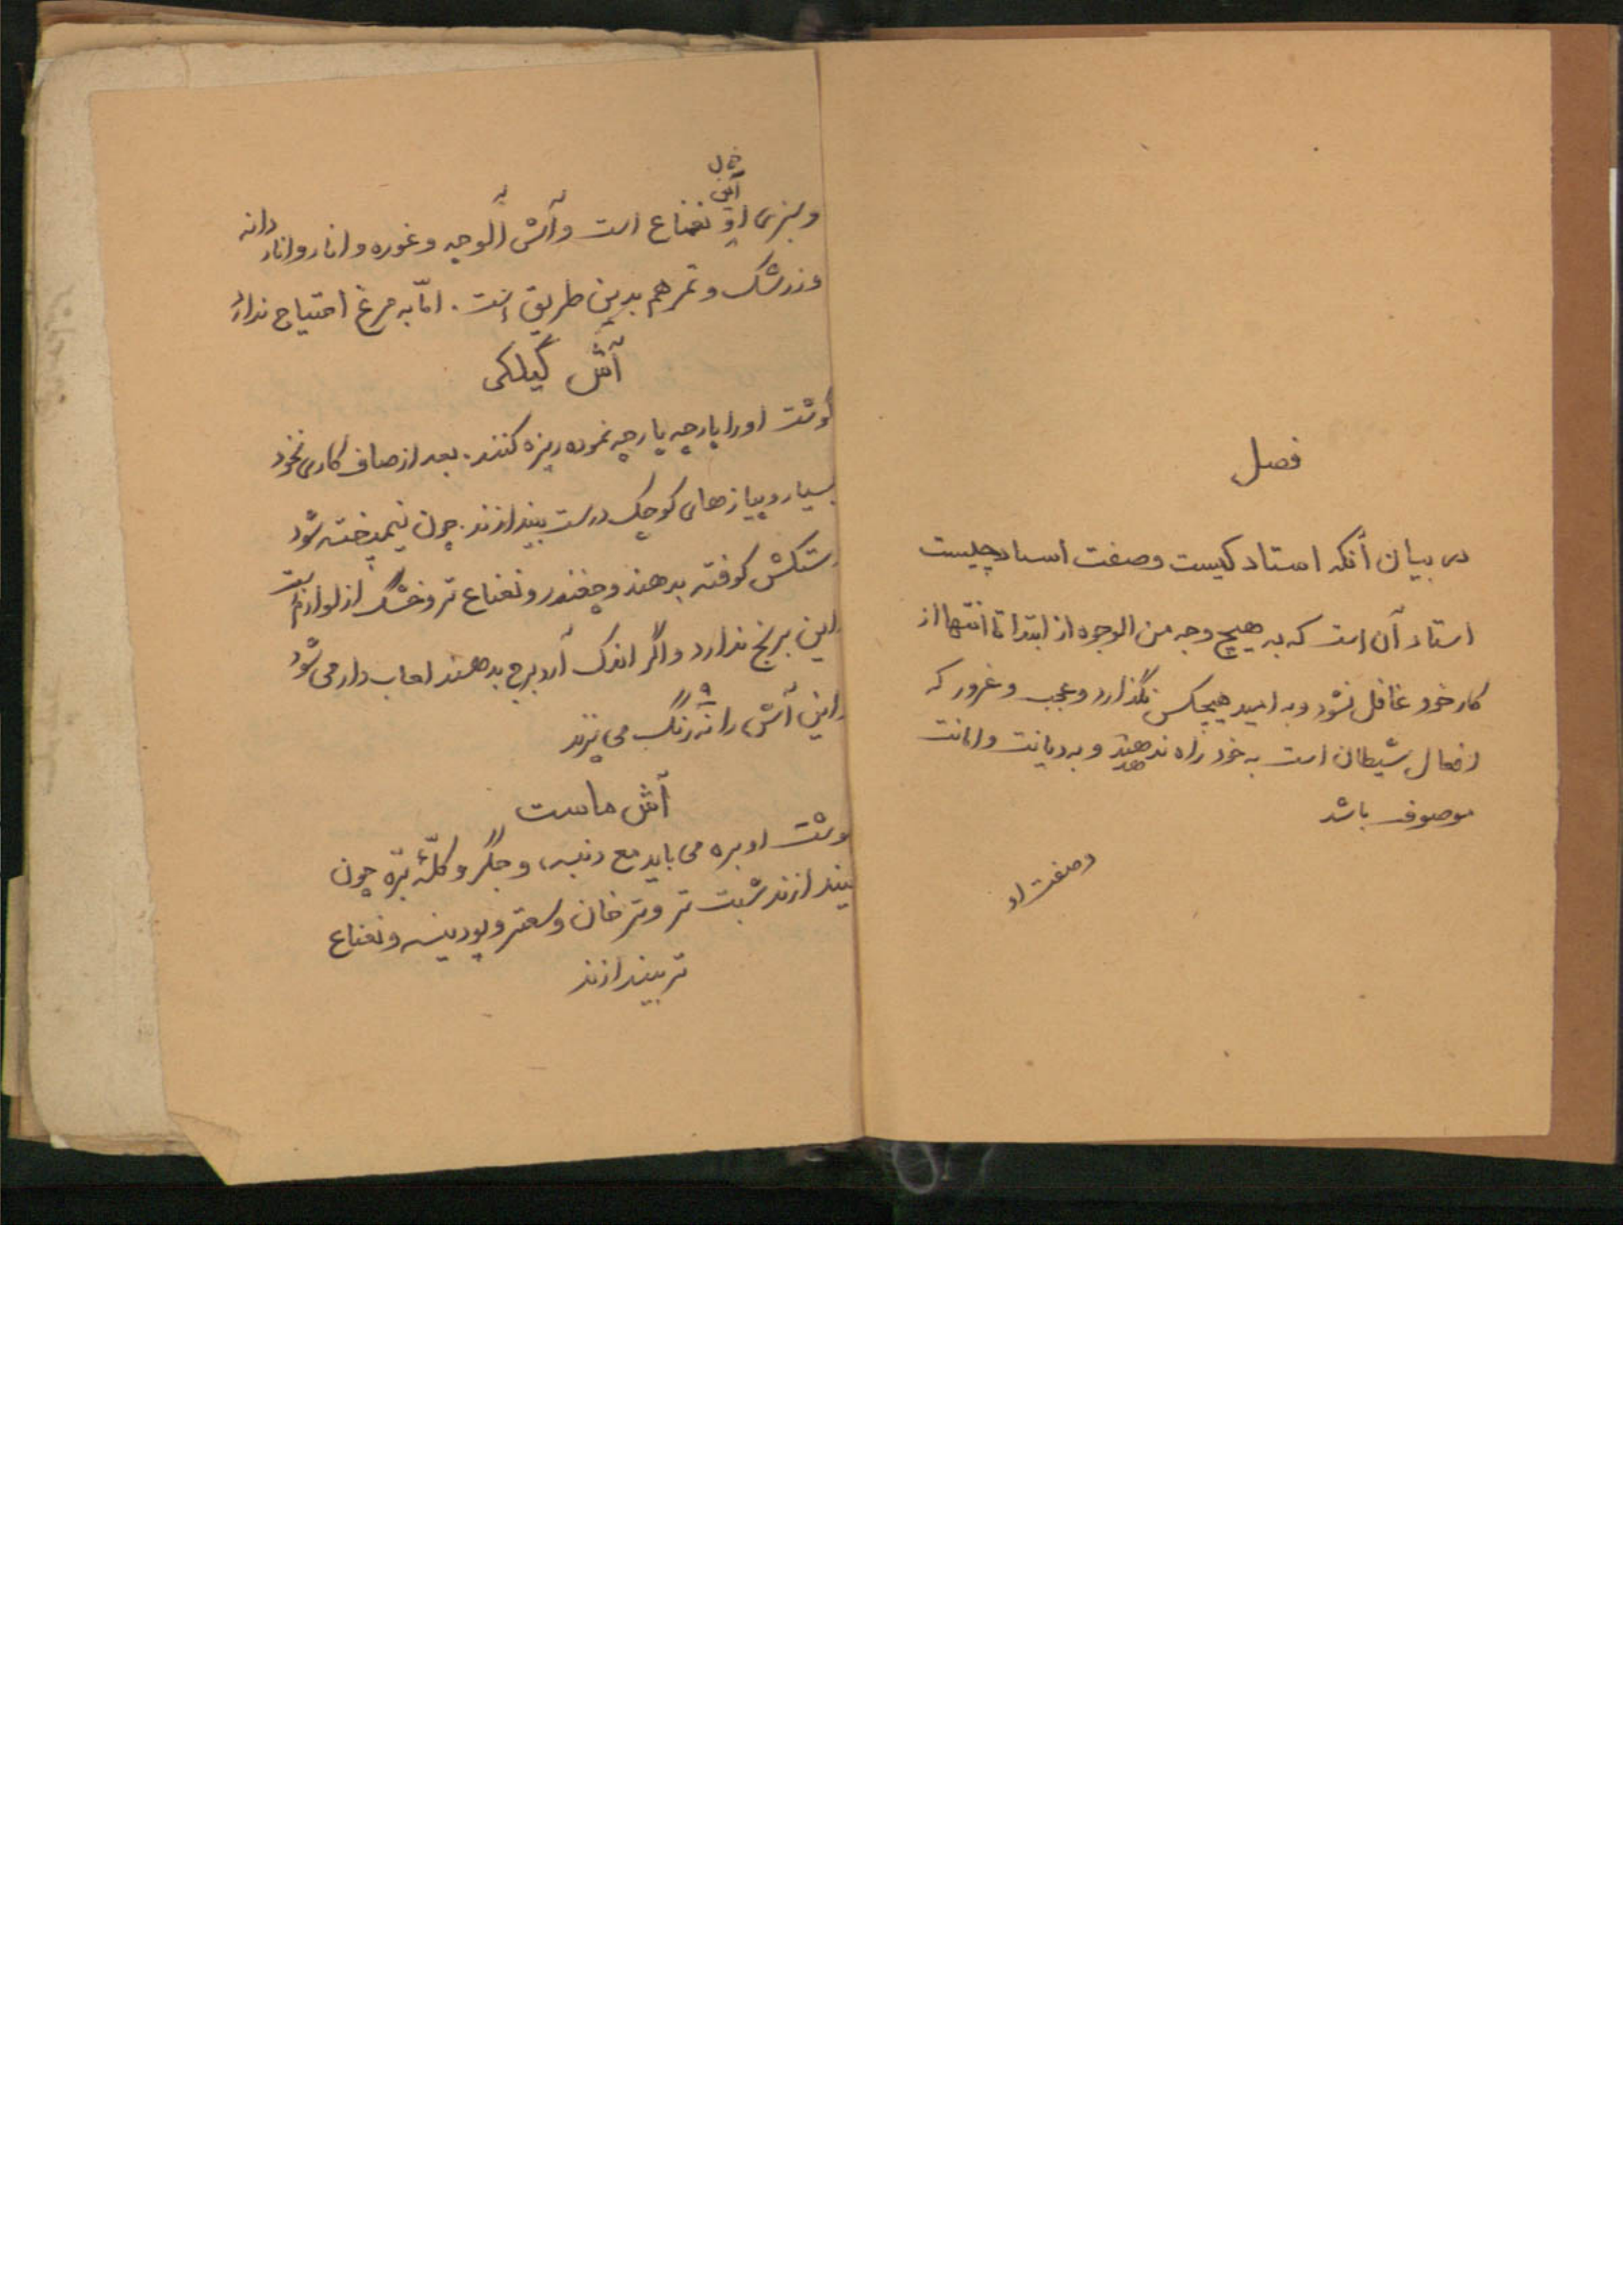 فصل
در بیان آنکه استاد کیست وصفت استاد چیست
استاد آن است که به هیچ وجه من الوجوه از ابتدا تا انتها از
کار خود غافل نشود و به امید هیچکس نگذارد و عجب و غرور که
افعال شیطان است به خود راه ندهند و به دیانت و امانت
موصوف باشد
وصفت او
آش
و سبزی او نعناع است و آش آلوچه و غوره و انار و انار دانه
و زرشک و تمر هم بدین طریق است . امّا به مرغ احتیاج ندارد
آش گیلکی
گوشت او را پارچه پارچه نموده ریزه کنند. بعد از صاف کاری نخود
بسیار و پیازهای کوچک درست بیندازند. چون نیم پخته شود
کوفته بدهند و چغندر و نعناع تر و خشک از لوازم است
این برنج ندارد و اگر اندک آرد برنج بدهند لعاب دار می شود
این آش را نه رنگ می پزند
آش ماست
گوشت او بره می باید مع دنبه، و جگر و کلّهٔ برّه چون
بیندازند شبت تر و ترخان و سعتر و پودینه و نعناع
تر بیندازند